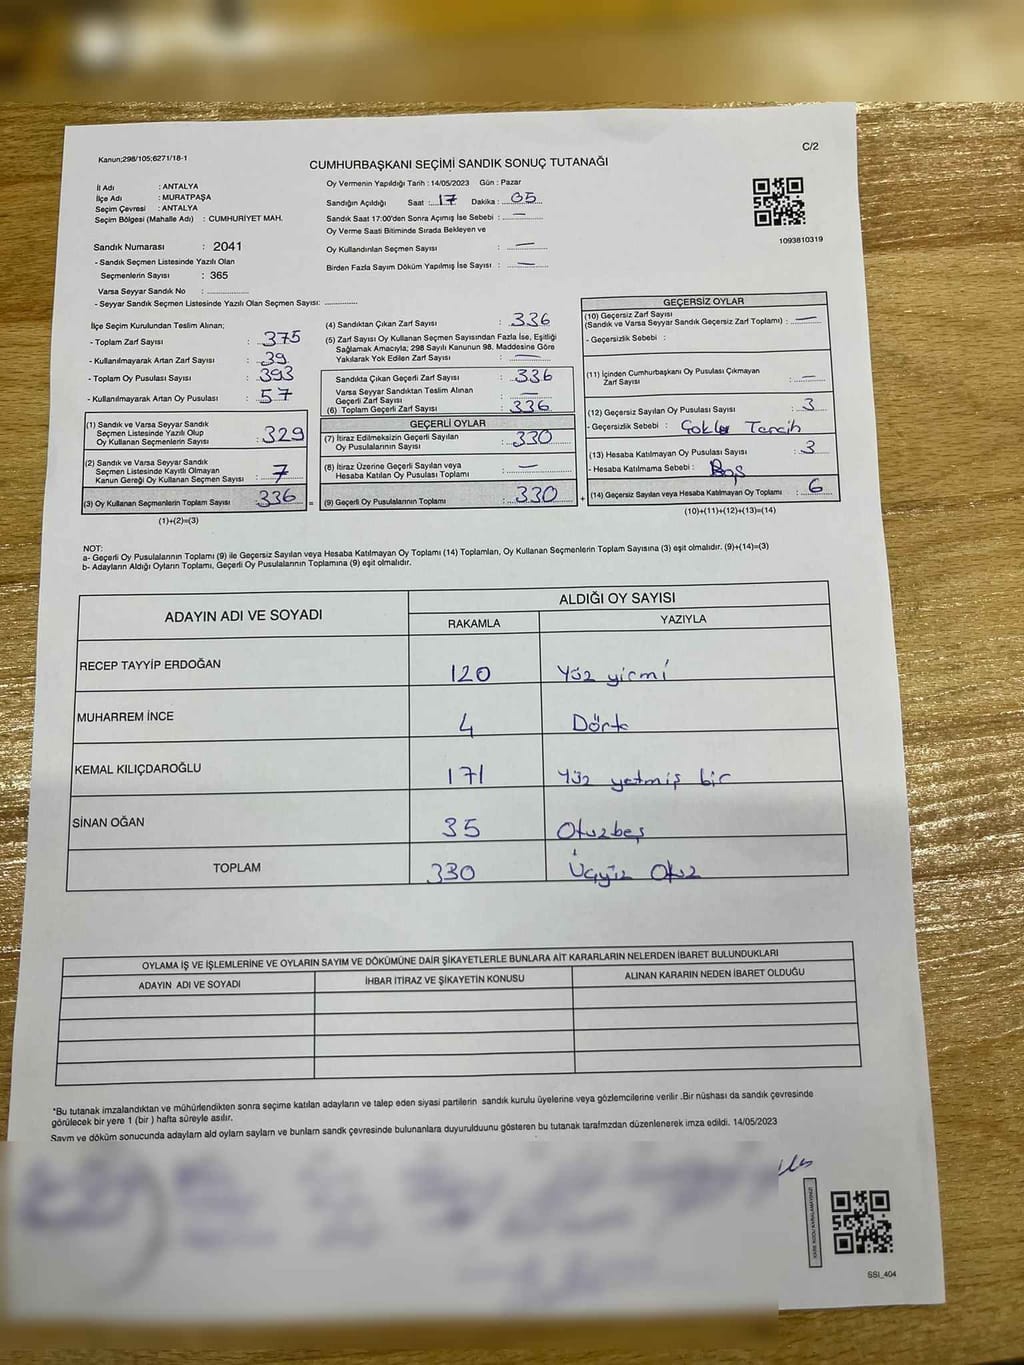 Kanun;298/105;6271/18-1
C/2
CUMHURBAŞKANI SEÇİMİ SANDIK SONUÇ TUTANAĞI
İl Adı : ANTALYA
İlçe Adı : MURATPAŞA
Seçim Çevresi : ANTALYA
Seçim Bölgesi (Mahalle Adı) : CUMHURİYET MAH.
Sandık Numarası : 2041
- Sandık Seçmen Listesinde Yazılı Olan
Seçmenlerin Sayısı : 365
Varsa Seyyar Sandık No : ............
- Seyyar Sandık Seçmen Listesinde Yazılı Olan Seçmen Sayısı: ............
Oy Vermenin Yapıldığı Tarih : 14/05/2023 Gün : Pazar
Sandığın Açıldığı Saat : 17 Dakika : 05
Sandık Saat 17:00'den Sonra Açımış İse Sebebi : —
Oy Verme Saati Bitiminde Sırada Bekleyen ve
Oy Kullandırılan Seçmen Sayısı : —
Birden Fazla Sayım Döküm Yapılmış İse Sayısı : —
1093810319
İlçe Seçim Kurulundan Teslim Alınan;
- Toplam Zarf Sayısı : 375
- Kullanılmayarak Artan Zarf Sayısı : 39
- Toplam Oy Pusulası Sayısı : 393
- Kullanılmayarak Artan Oy Pusulası : 57
(1) Sandık ve Varsa Seyyar Sandık
Seçmen Listesinde Yazılı Olup
Oy Kullanan Seçmenlerin Sayısı : 329
(2) Sandık ve Varsa Seyyar Sandık
Seçmen Listesinde Kayıtlı Olmayan
Kanun Gereği Oy Kullanan Seçmen Sayısı : 7
(3) Oy Kullanan Seçmenlerin Toplam Sayısı : 336 =
(1)+(2)=(3)
(4) Sandıktan Çıkan Zarf Sayısı : 336
(5) Zarf Sayısı Oy Kullanan Seçmen Sayısından Fazla İse, Eşitliği
Sağlamak Amacıyla; 298 Sayılı Kanunun 98. Maddesine Göre
Yakılarak Yok Edilen Zarf Sayısı : —
Sandıkta Çıkan Geçerli Zarf Sayısı : 336
Varsa Seyyar Sandıktan Teslim Alınan
Geçerli Zarf Sayısı : —
(6) Toplam Geçerli Zarf Sayısı : 336
GEÇERLİ OYLAR
(7) İtiraz Edilmeksizin Geçerli Sayılan
Oy Pusulalarının Sayısı : 330
(8) İtiraz Üzerine Geçerli Sayılan veya
Hesaba Katılan Oy Pusulası Toplamı : —
(9) Geçerli Oy Pusulalarının Toplamı : 330 +
GEÇERSİZ OYLAR
(10) Geçersiz Zarf Sayısı
(Sandık ve Varsa Seyyar Sandık Geçersiz Zarf Toplamı) : —
- Geçersizlik Sebebi :
(11) İçinden Cumhurbaşkanı Oy Pusulası Çıkmayan
Zarf Sayısı : —
(12) Geçersiz Sayılan Oy Pusulası Sayısı : 3
- Geçersizlik Sebebi : Çoklu Tercih
(13) Hesaba Katılmayan Oy Pusulası Sayısı : 3
- Hesaba Katılmama Sebebi : Boş
(14) Geçersiz Sayılan veya Hesaba Katılmayan Oy Toplamı : 6
(10)+(11)+(12)+(13)=(14)
NOT:
a- Geçerli Oy Pusulalarının Toplamı (9) ile Geçersiz Sayılan veya Hesaba Katılmayan Oy Toplamı (14) Toplamları, Oy Kullanan Seçmenlerin Toplam Sayısına (3) eşit olmalıdır. (9)+(14)=(3)
b- Adayların Aldığı Oyların Toplamı, Geçerli Oy Pusulalarının Toplamına (9) eşit olmalıdır.
ADAYIN ADI VE SOYADI
ALDIĞI OY SAYISI
RAKAMLA YAZIYLA
RECEP TAYYİP ERDOĞAN 120 Yüz yirmi
MUHARREM İNCE 4 Dört
KEMAL KILIÇDAROĞLU 171 Yüz yetmiş bir
SİNAN OĞAN 35 Otuzbeş
TOPLAM 330 Üçyüz Otuz
OYLAMA İŞ VE İŞLEMLERİNE VE OYLARIN SAYIM VE DÖKÜMÜNE DAİR ŞİKAYETLERLE BUNLARA AİT KARARLARIN NELERDEN İBARET BULUNDUKLARI
ADAYIN ADI VE SOYADI İHBAR İTİRAZ VE ŞİKAYETİN KONUSU ALINAN KARARIN NEDEN İBARET OLDUĞU
*Bu tutanak imzalandıktan ve mühürlendikten sonra seçime katılan adayların ve talep eden siyasi partilerin sandık kurulu üyelerine veya gözlemcilerine verilir .Bir nüshası da sandık çevresinde
görülecek bir yere 1 (bir ) hafta süreyle asılır.
Sayım ve döküm sonucunda adayların aldı oyların sayıları ve bunların sandk çevresinde bulunanlara duyurulduunu gösteren bu tutanak tarafmzdan düzenlenerek imza edildi. 14/05/2023
SSI_404